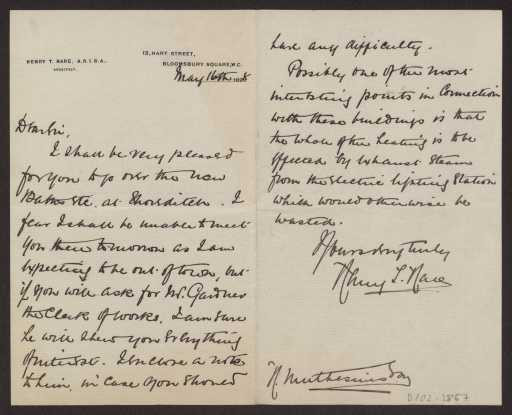 HENRY T. HARE, A.R.I.B.A.
ARCHITECT.
13, HART STREET,
BLOOMSBURY SQUARE, W.C.
May 16th 1898
Dear Sir,
I shall be very pleased
for you to go over the new
Baths etc. at Shoreditch. I
fear I shall be unable to meet
you there tomorrow as I am
expecting to be out of town, but
if you will ask for Mr. Gardner
the Clerk of Works, I am sure
he will shew you everything
of interest. I enclose a note
to him, in case you should
have any difficulty.
Possibly one of the most
interesting points in connection
with these buildings is that
the whole of the heating is to be
effected by exhaust steam
from the Electric lighting station
which would otherwise be
wasted.
Yours very truly
Henry T. Hare
H Muthesius Esq
D102-2867